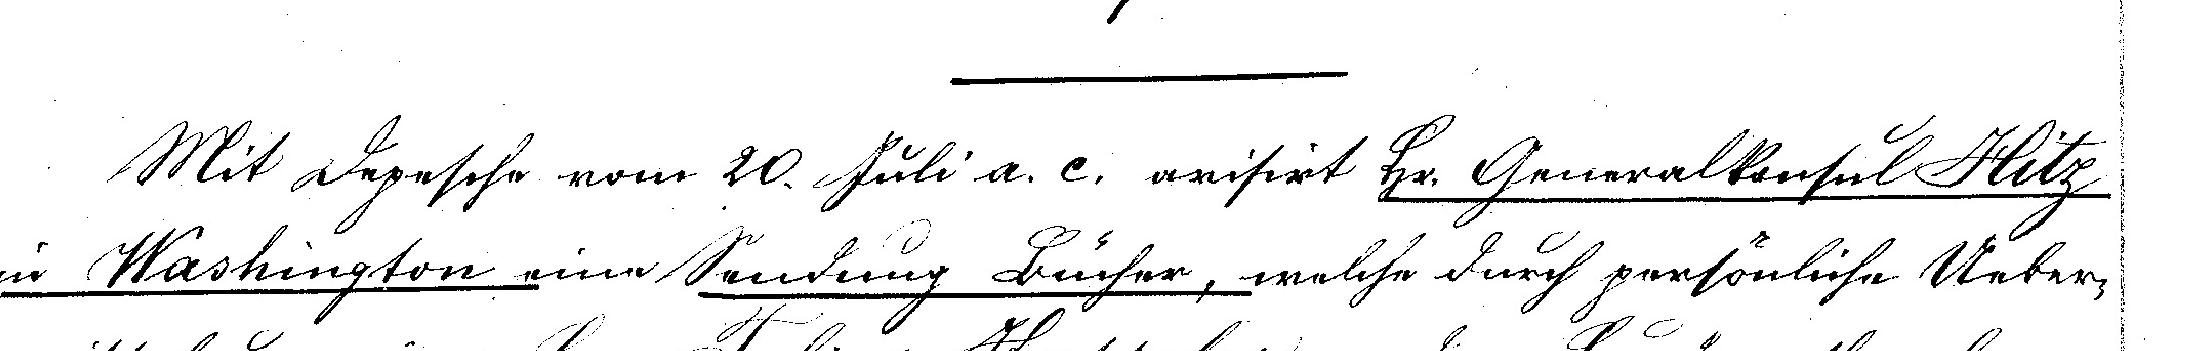 Mit Depesche vom 20. Juli a. c. avisirt Hr. Generalkonsul Hitz
in Washington eine Sendung Bücher, welche durch persönliche Ueber-